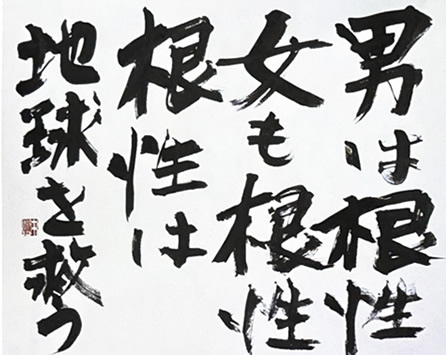 男は根性
女も根性
根性は
地球を救う